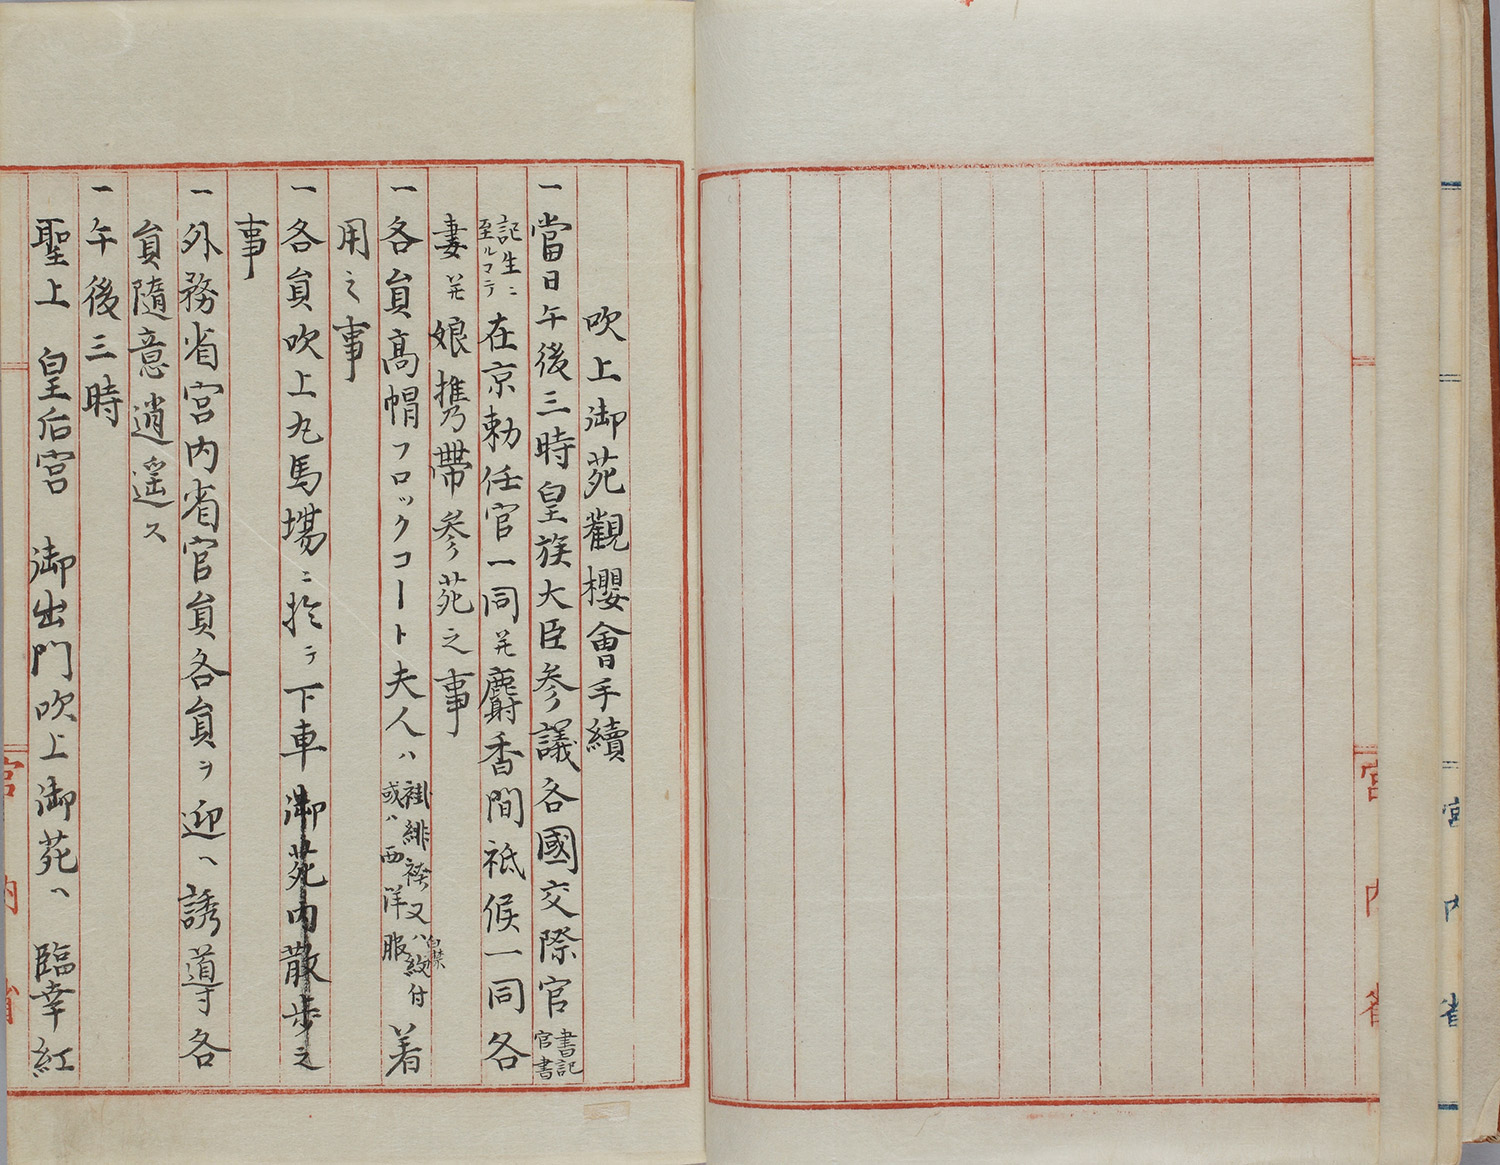 宮内省
宮内省
吹上御苑觀櫻會手續
一當日午後三時皇族大臣参議各國交際官書記官書
記生ニ至ルマテ在京勅任官一同并麝香間祗候一同各
妻并娘携帶参苑之事
一各員高帽フロックコート夫人ハ袿緋袴又ハ白襟紋付或ハ西洋服着
用之事
一各員吹上丸馬場ニ於テ下車御苑内散歩之
事
一外務省宮内省官員各員ヲ迎ヘ誘導各
員隨意逍遥ス
一午後三時
聖上 皇后宮 御出門吹上御苑ヘ 臨幸紅
宮内省